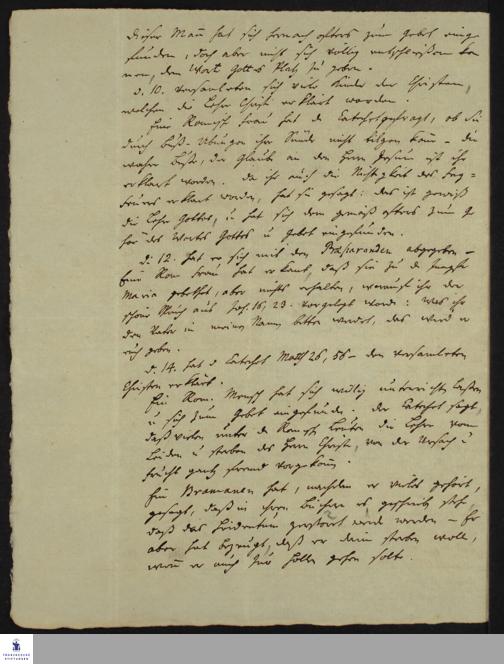 dieser Mann hat sich hernach öfters zum Gebet einge-
funden, doch aber nicht sich völlig entschließen kön-
nen, dem Wort Gottes Platz zu geben.
d. 10. versamleten sich viele Kinder der Christen,
welchen die Lehre Christi erklärt worden.
Eine Römische Frau hat d. Catechet gefragt, ob sie
durch Buß-Übungen ihre Sünde nicht tilgen könne - die
wahre Buße, der Glaube an den Herrn Jesum ist ihr
erklaert worden. da ihr auch die Nichtigkeit des Feg-
feuers erklaert worden, hat sie gesagt: das ist gewiß
die Lehre Gottes, u hat sich dem gemäß öfters zum Ge
hör des Wortes Gottes u Gebet eingefunden.
d. 12. hat er sich mit den Præparanden abgegeben -
Eine Röm Frau hat erkant, daß sie zu d. Jungfr
Maria gebethet, aber nichts erhalten, worauf ihr der
schöne Spruch aus Joh. 16, 23. vorgelegt worde: Was ihr
den Vater in meinem Namen bitten werdet, das wird er
euch geben.
d. 14. hat d Catechet Matth 26, 56 - den versamleten
Christen erklärt.
Ein Röm. Mensch hat sich willig unterrichten lassen
u sich zum Gebet eingefunde. der Catechet sagt,
daß vielen unter d Römisch Leuten die Lehre vom
Leiden u sterben des Herrn Christi, von der Ursach u
frucht gantz fremd vorgekomm.
Ein Bramanen hat, nachdem er viel gehört,
gesagt, daß in ihren Büchern es geschrieben steh,
daß das Heidentum zerstoert werde werden - Er
aber hat bezeugt, daß er darin sterben wolle,
wenn er auch zur Hölle gehen solte.
FRANCKESCHE
STIFTUNGEN